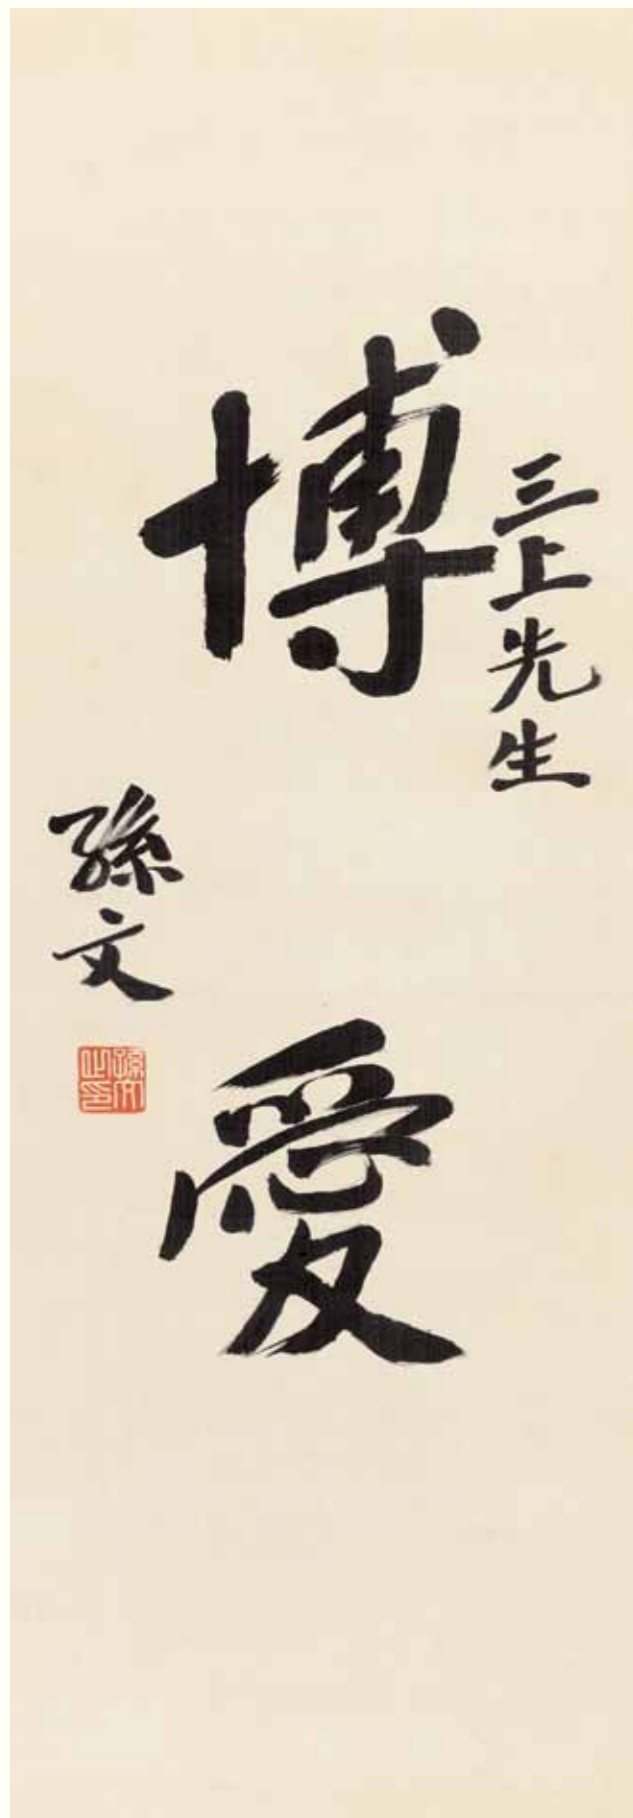 三上先生
博愛
孫文
孫文之印